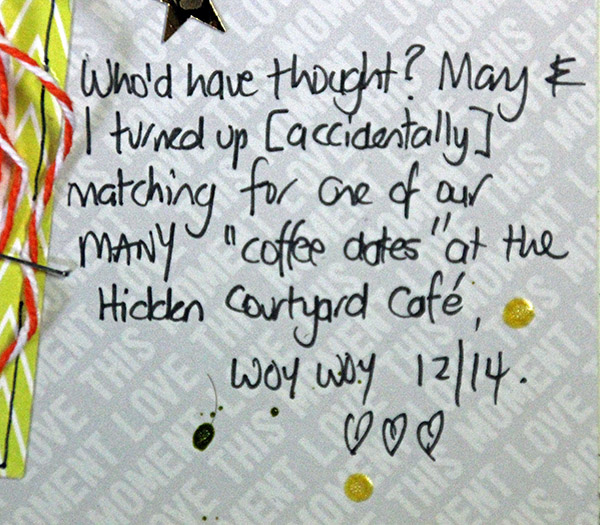 Who'd have thought? May &
I turned up [accidentally]
matching for one of our
MANY "coffee dates" at the
Hidden Courtyard Café,
WOY WOY 12/14.
♡♡♡
LOVE THIS MOMENT